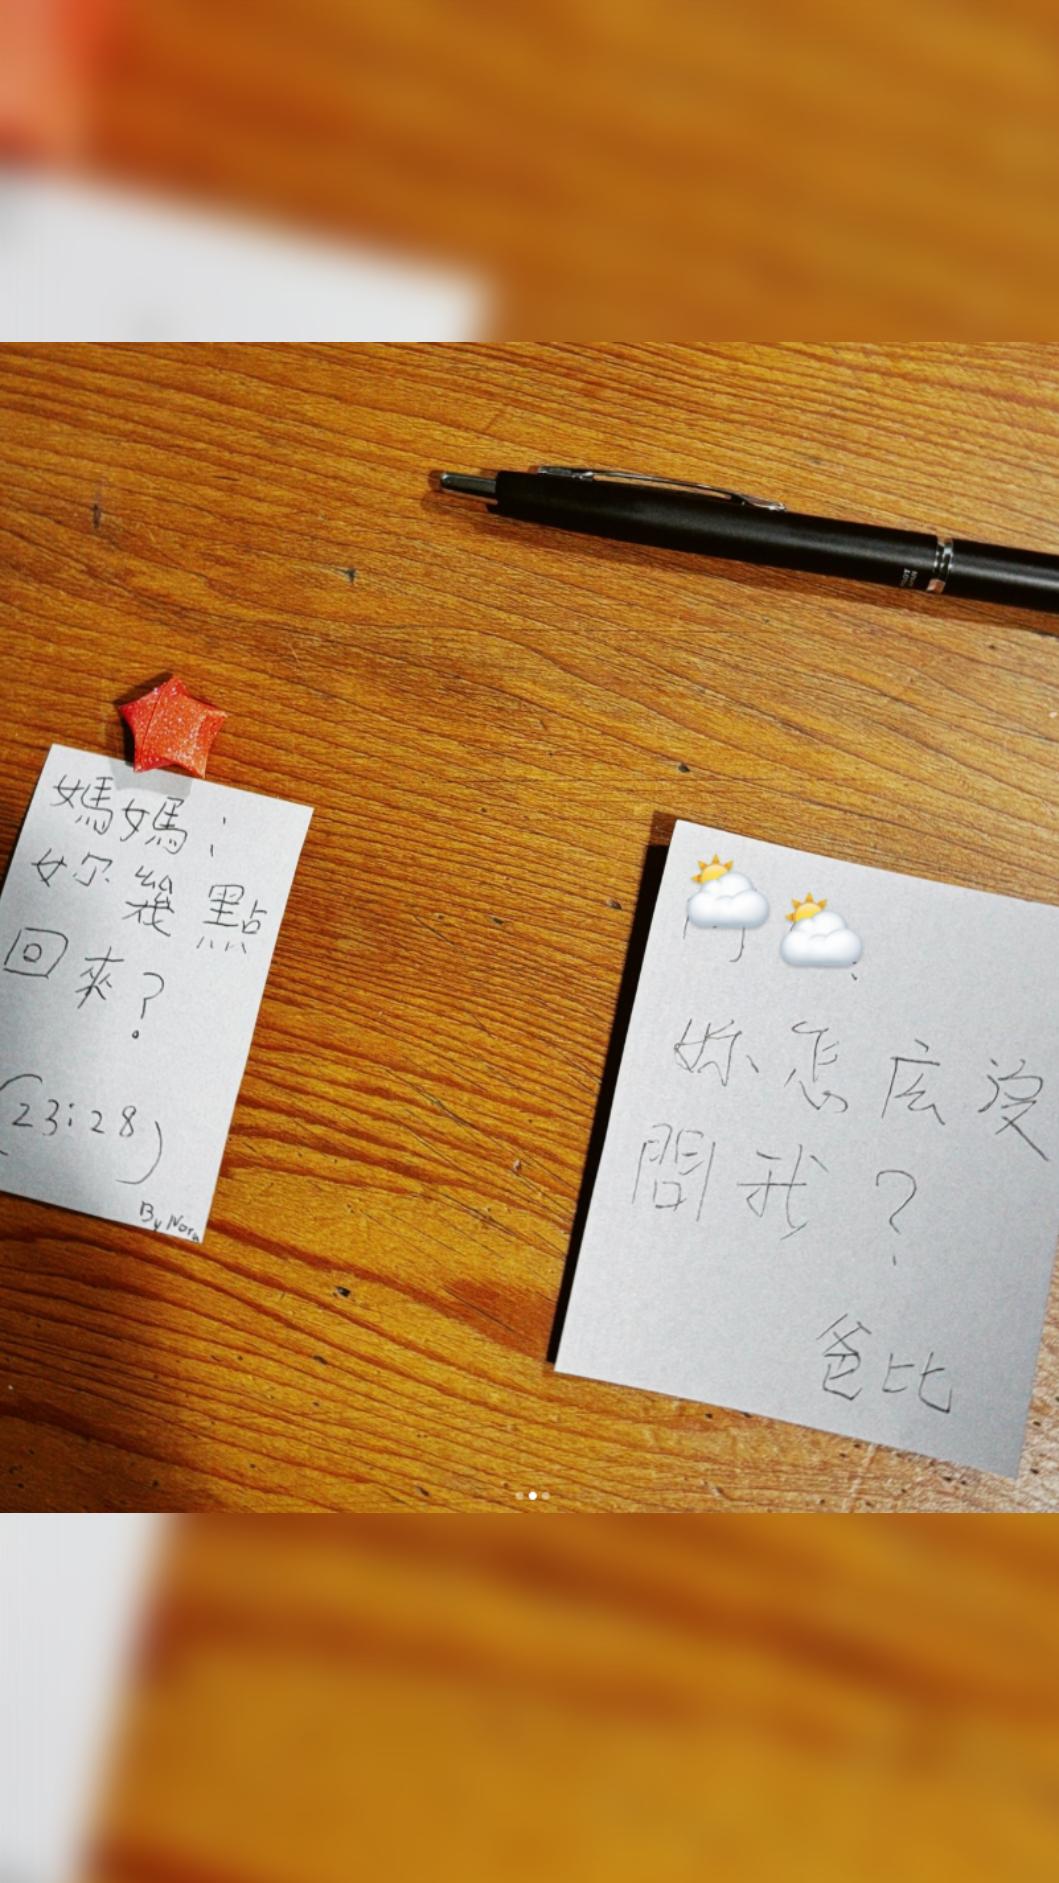 媽媽：
妳幾點
回來？
(23:28)
By Nora
妳怎庅沒
問我？
爸比